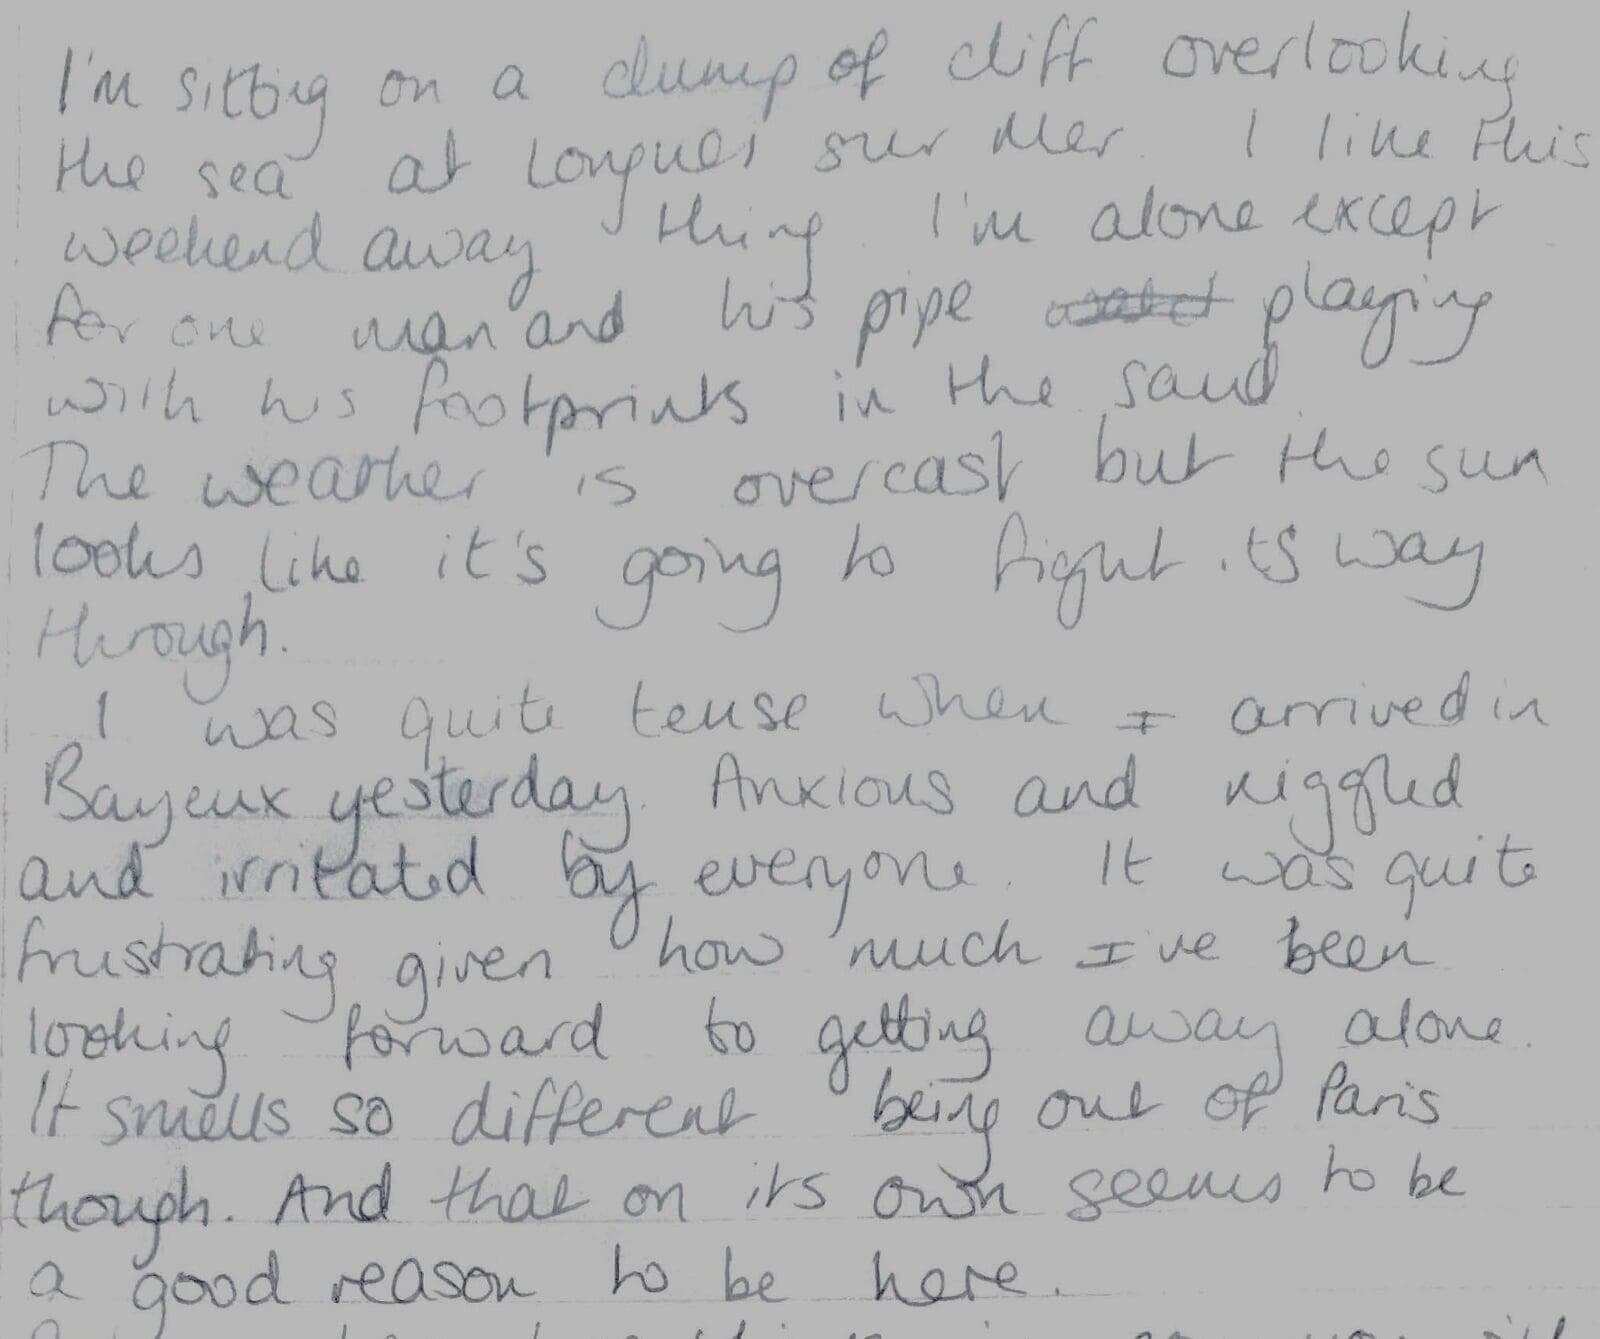 I'm sitting on a clump of cliff overlooking
the sea at Longues sur Mer. I like this
weekend away thing. I'm alone except
for one man and his pipe playing
with his footprints in the sand.
The weather is overcast but the sun
looks like it's going to fight its way
through.
I was quite tense when I arrived in
Bayeux yesterday. Anxious and niggled
and irritated by everyone. It was quite
frustrating given how much I've been
looking forward to getting away alone.
It smells so different being out of Paris
though. And that on its own seems to be
a good reason to be here.